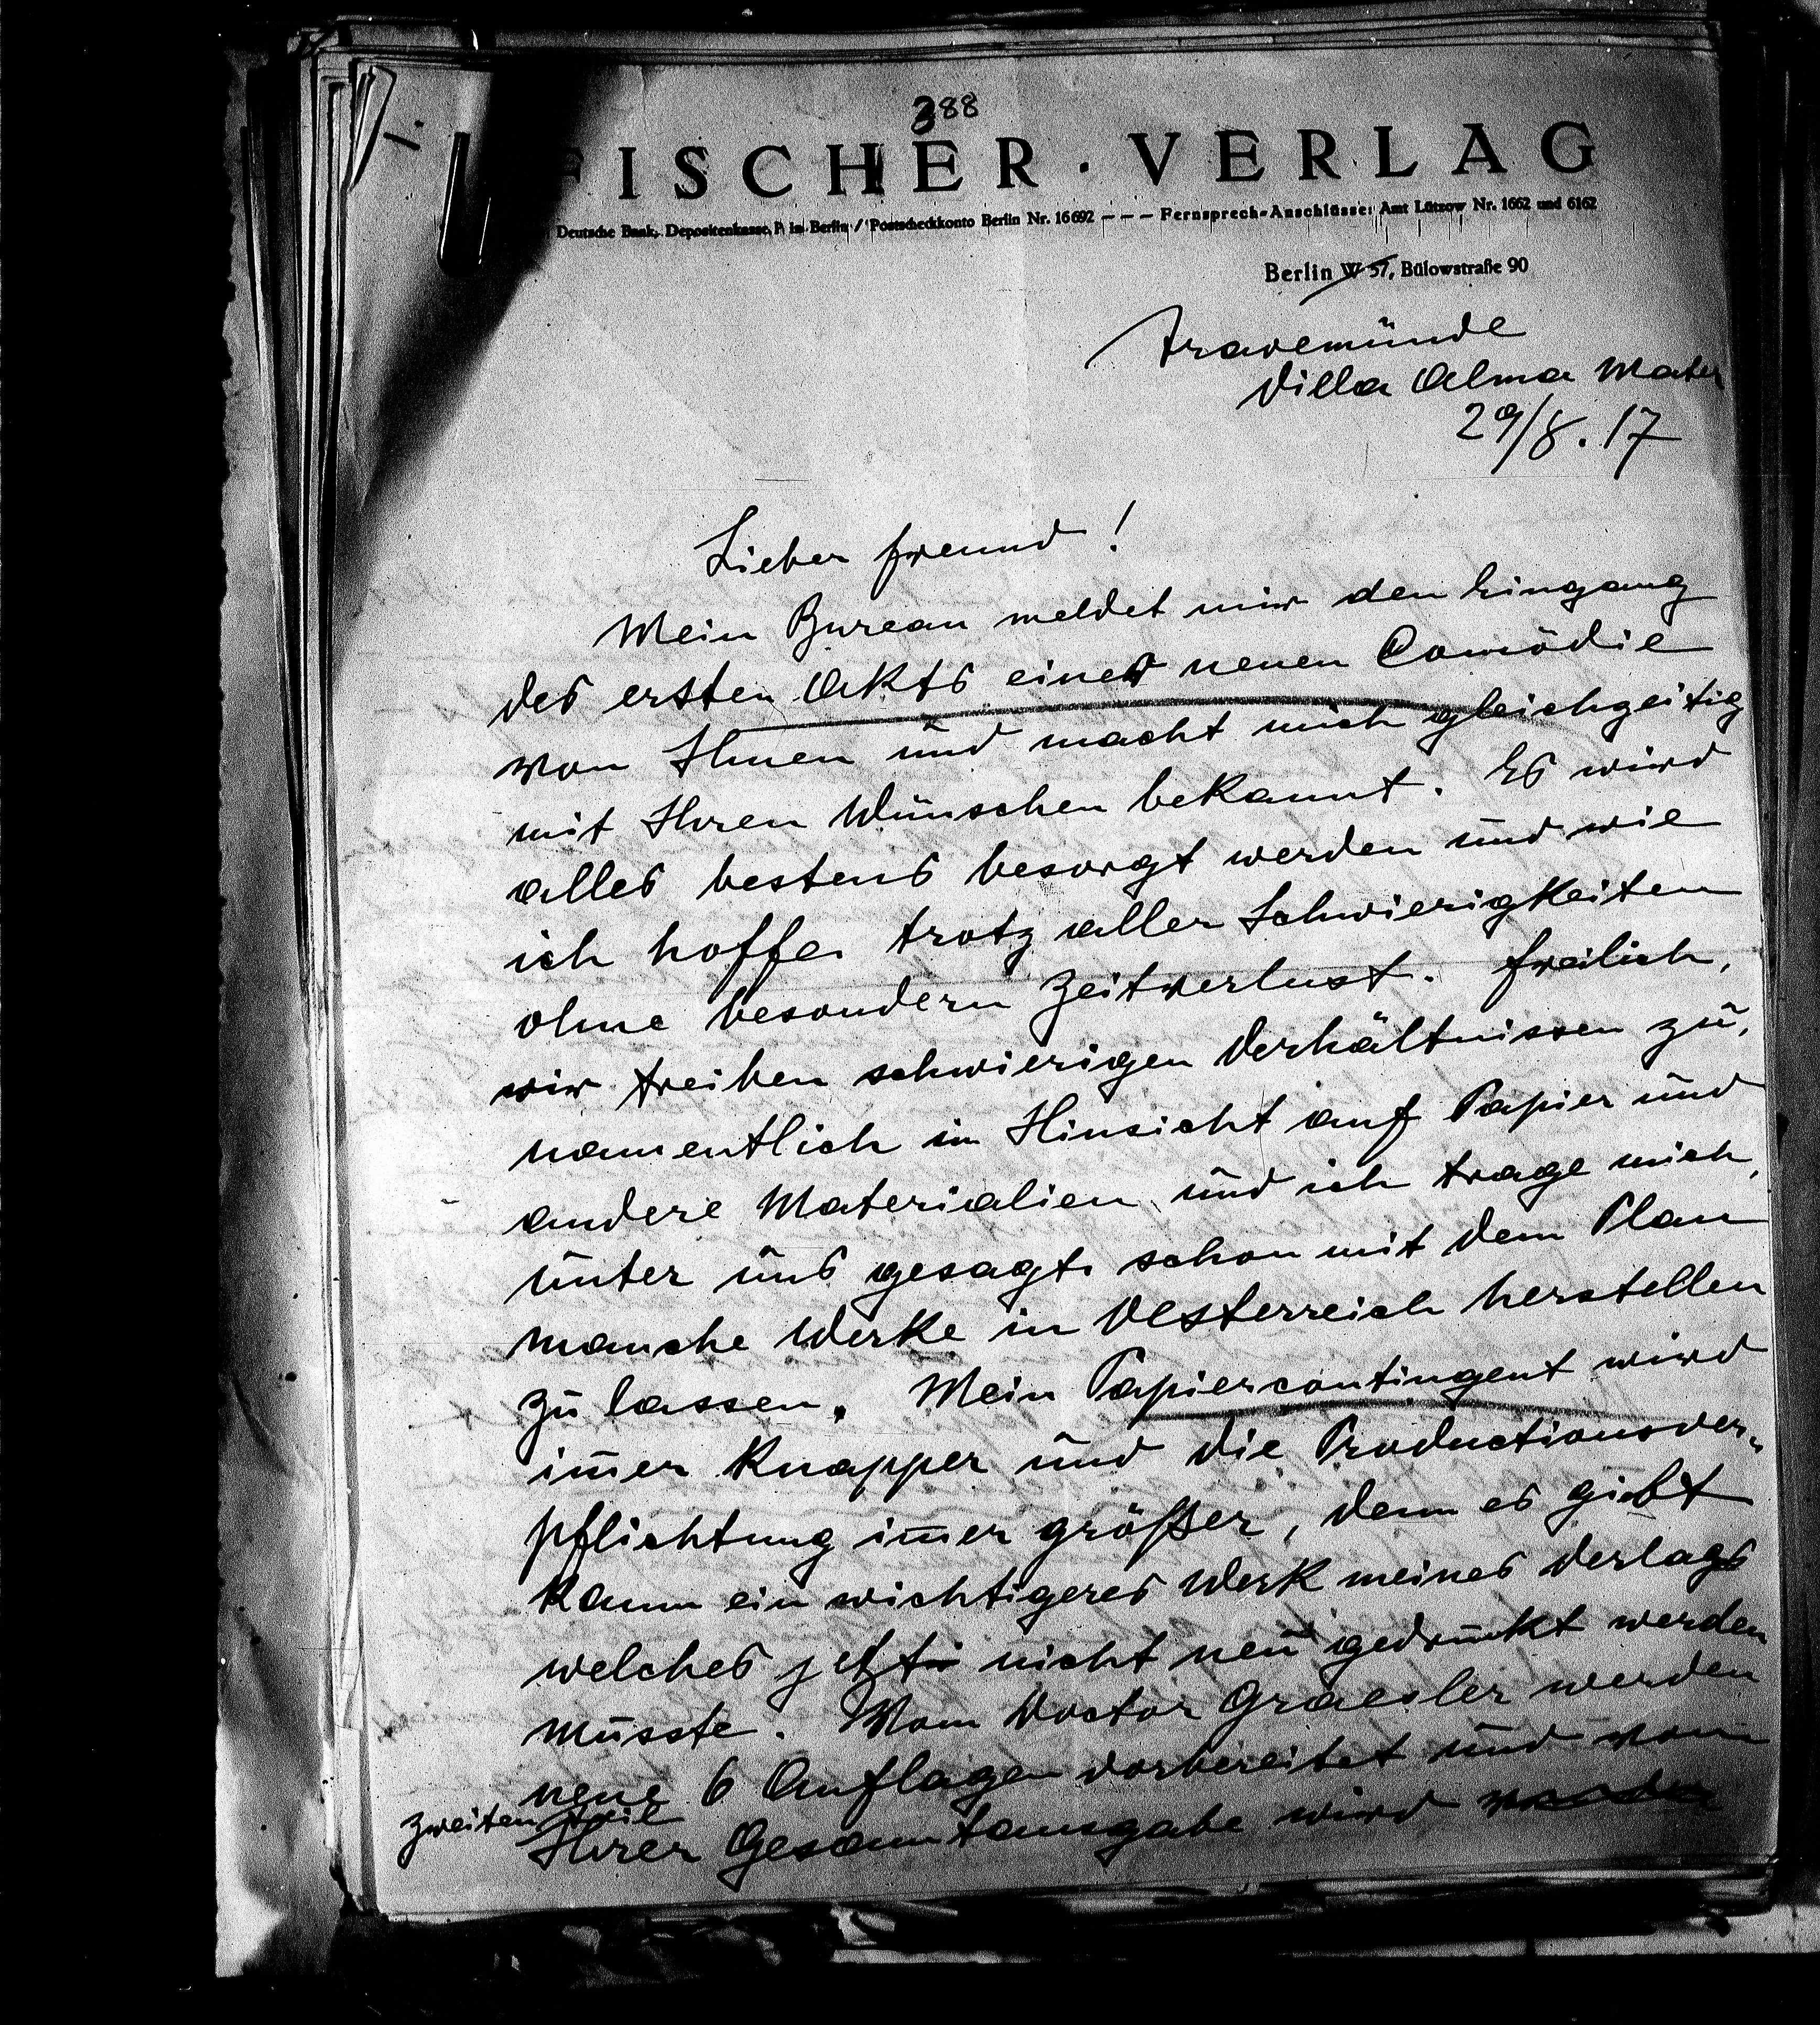 388
FISCHER · VERLAG
Deutsche Bank, Depositenkasse P in Berlin / Postscheckkonto Berlin Nr. 16692 — — — Fernsprech-Anschlüsse: Amt Lützow Nr. 1662 und 6162
Berlin W 57, Bülowstraße 90
Travemünde
Villa Alma Mater
29/8. 17
Lieber Freund!
Mein Bureau meldet mir den Eingang
des ersten Akts einer neuen Comödie
von Ihnen und macht mich gleichzeitig
mit Ihren Wünschen bekannt. Es wird
alles bestens besorgt werden und wie
ich hoffe, trotz aller Schwierigkeiten
ohne besondern Zeitverlust. Freilich,
wir treiben schwierigen Verhältnissen zu,
namentlich in Hinsicht auf Papier und
andere Materialien und ich trage mich,
unter uns gesagt, schon mit dem Plan
manche Werke in Oesterreich herstellen
zu lassen. Mein Papiercontingent wird
im̅er knapper und die Productionsver-
pflichtung im̅er größer, denn es giebt
kaum ein wichtigeres Werk meines Verlags
welches jetzt nicht neu gedruckt werden
müsste. Vom Doctor Graesler werden
neue 6 Auflagen vorbereitet und vom
zweiten Teil
Ihrer Gesammtausgabe wird